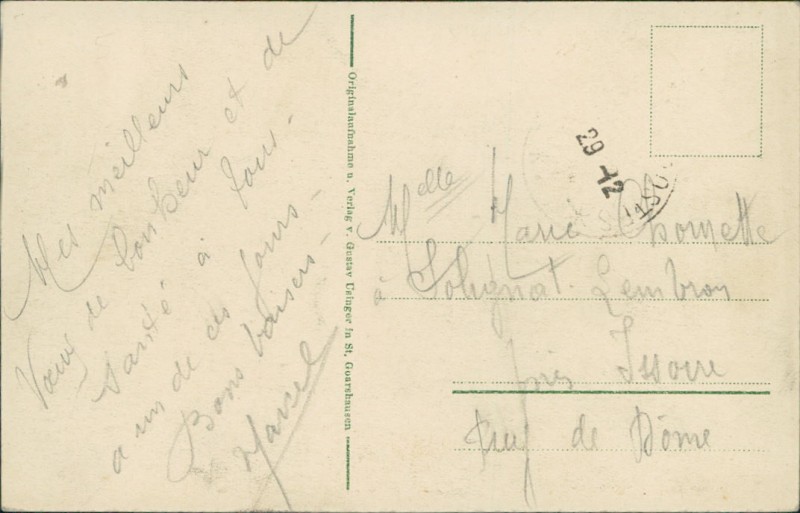 Mes meilleurs
Vœux de bonheur et de
santé à tous -
a un de ces jours -
Bons baisers -
Marcel
Originalaufnahme u. Verlag v. Gustav Usinger in St. Goarshausen
29 12
Melle Marie
à Solignat Lembron
près Issoire
Puy de Dôme